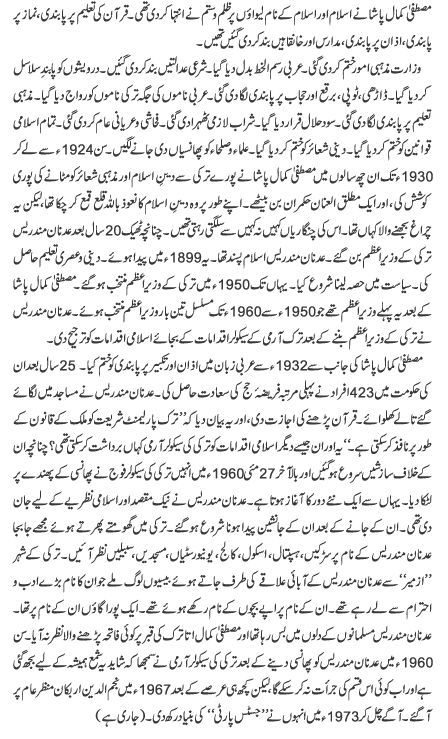 مصطفیٰ کمال پاشا نے اسلام اور اسلام کے نام لیواؤں پر ظلم و ستم کی انتہا کردی تھی۔ قرآن کی تعلیم پر پابندی، نماز پر
پابندی، اذان پر پابندی، مدارس اور خانقاہیں بند کردی گئیں تھیں۔
وزارت مذہبی امور ختم کردی گئی۔ عربی رسم الخط بدل دیا گیا۔ شرعی عدالتیں بند کردی گئیں۔ درویشوں کو پابندِ سلاسل
کردیا گیا۔ ڈاڑھی، ٹوپی، برقع اور حجاب پر پابندی لگادی گئی۔ عربی ناموں کی جگہ ترکی ناموں کو رواج دیا گیا۔ مذہبی
تعلیم پر پابندی لگادی گئی۔ سود حلال قرار دیا گیا۔ شراب لازمی ٹھہرادی گئی۔ فحاشی و عریانی عام کردی گئی۔ تمام اسلامی
قوانین کو ختم کردیا گیا۔ دینی شعائر کو ختم کردیا گیا۔ علماء و صلحاء کو پھانسیاں دی جانے لگیں۔ سن 1924ء سے لے کر
1930ء تک ان چھ سالوں میں مصطفیٰ کمال پاشا نے پورے ترکی سے دینِ اسلام اور مذہبی شعائر کو مٹانے کی پوری
کوشش کی، اور ایک مطلق العنان حکمران بن بیٹھے۔ اپنے طور پر وہ دینِ اسلام کا نعوذ باللہ قلع قمع کرچکا تھا، لیکن یہ
چراغ بجھنے والا کہاں تھا۔ اس کی چنگاریاں کہیں نہ کہیں سے سلگتی رہتی تھیں۔ چنانچہ ٹھیک 20 سال بعد عدنان مندریس
ترکی کے وزیراعظم بن گئے۔ عدنان مندریس اسلام پسند تھا۔ یہ 1899ء میں پیدا ہوئے۔ دینی و عصری تعلیم حاصل
کی۔ سیاست میں حصہ لینا شروع کیا۔ یہاں تک 1950ء میں ترکی کے وزیراعظم منتخب ہوگئے۔ مصطفیٰ کمال پاشا
کے بعد یہ پہلے وزیراعظم تھے جو 1950ء سے 1960ء تک مسلسل تین بار وزیراعظم منتخب ہوئے۔ عدنان مندریس
نے ترکی کے وزیراعظم بننے کے بعد ترک آرمی کے سیکولر اقدامات کے بجائے اسلامی اقدامات کو ترجیح دی۔
مصطفیٰ کمال پاشا کی جانب سے 1932ء سے عربی زبان میں اذان اور تکبیر پر پابندی کو ختم کیا۔ 25 سال بعد ان
کی حکومت میں 423 افراد نے پہلی مرتبہ فریضۂ حج کی سعادت حاصل کی۔ عدنان مندریس نے مساجد میں لگائے
گئے تالے کھلوائے۔ قرآن پڑھنے کی اجازت دی، اور یہ بیان دیا کہ ”ترک پارلیمنٹ شریعت کو ملک کے قانون کے
طور پر نافذ کرسکتی ہے۔“ یہ اور ان جیسے دیگر اسلامی اقدامات کو ترکی کی سیکولر آرمی کہاں برداشت کرسکتی تھی؟ چنانچہ ان
کے خلاف سازشیں شروع ہوگئیں اور بالآخر 27 مئی 1960ء میں انہیں ترکی کی سیکولر فوج نے پھانسی کے پھندے پر
لٹکا دیا۔ یہاں سے ایک نئے دور کا آغاز ہوتا ہے۔ عدنان مندریس نے نیک مقصد اور اسلامی نظریے کے لیے جان
دی تھی۔ ان کے جانے کے بعد ان کے جانشین پیدا ہونا شروع ہوگئے۔ ترکی میں گھومتے پھرتے ہوئے مجھے جابجا
عدنان مندریس کے نام پر سڑکیں، ہسپتال، اسکول، کالج، یونیورسٹیاں، مسجدیں، سبیلیں نظر آئیں۔ ترکی کے شہر
”ازمیر“ سے عدنان مندریس کے آبائی علاقے کی طرف جاتے ہوئے بیسیوں لوگ ملے جو ان کا نام بڑے ادب و
احترام سے لے رہے تھے۔ ان کے نام پر اپنے بچوں کے نام رکھے ہوئے تھے۔ ایک پورا گاؤں ان کے نام پر تھا۔
عدنان مندریس مسلمانوں کے دلوں میں بس رہا تھا اور مصطفیٰ کمال اتاترک کی قبر پر کوئی فاتحہ پڑھنے والا نظر نہ آیا۔ سن
1960ء میں عدنان مندریس کو پھانسی دینے کے بعد ترکی کی سیکولر آرمی نے سمجھا کہ شاید یہ شمع ہمیشہ کے لیے بجھ گئی
ہے اور اب کوئی اس قسم کی جرأت نہ کرسکے گا، لیکن کچھ ہی عرصے کے بعد 1967ء میں نجم الدین اربکان منظر عام پر
آگئے۔ آگے چل کر 1973ء میں انہوں نے ”جسٹس پارٹی“ کی بنیاد رکھ دی۔ (جاری ہے)